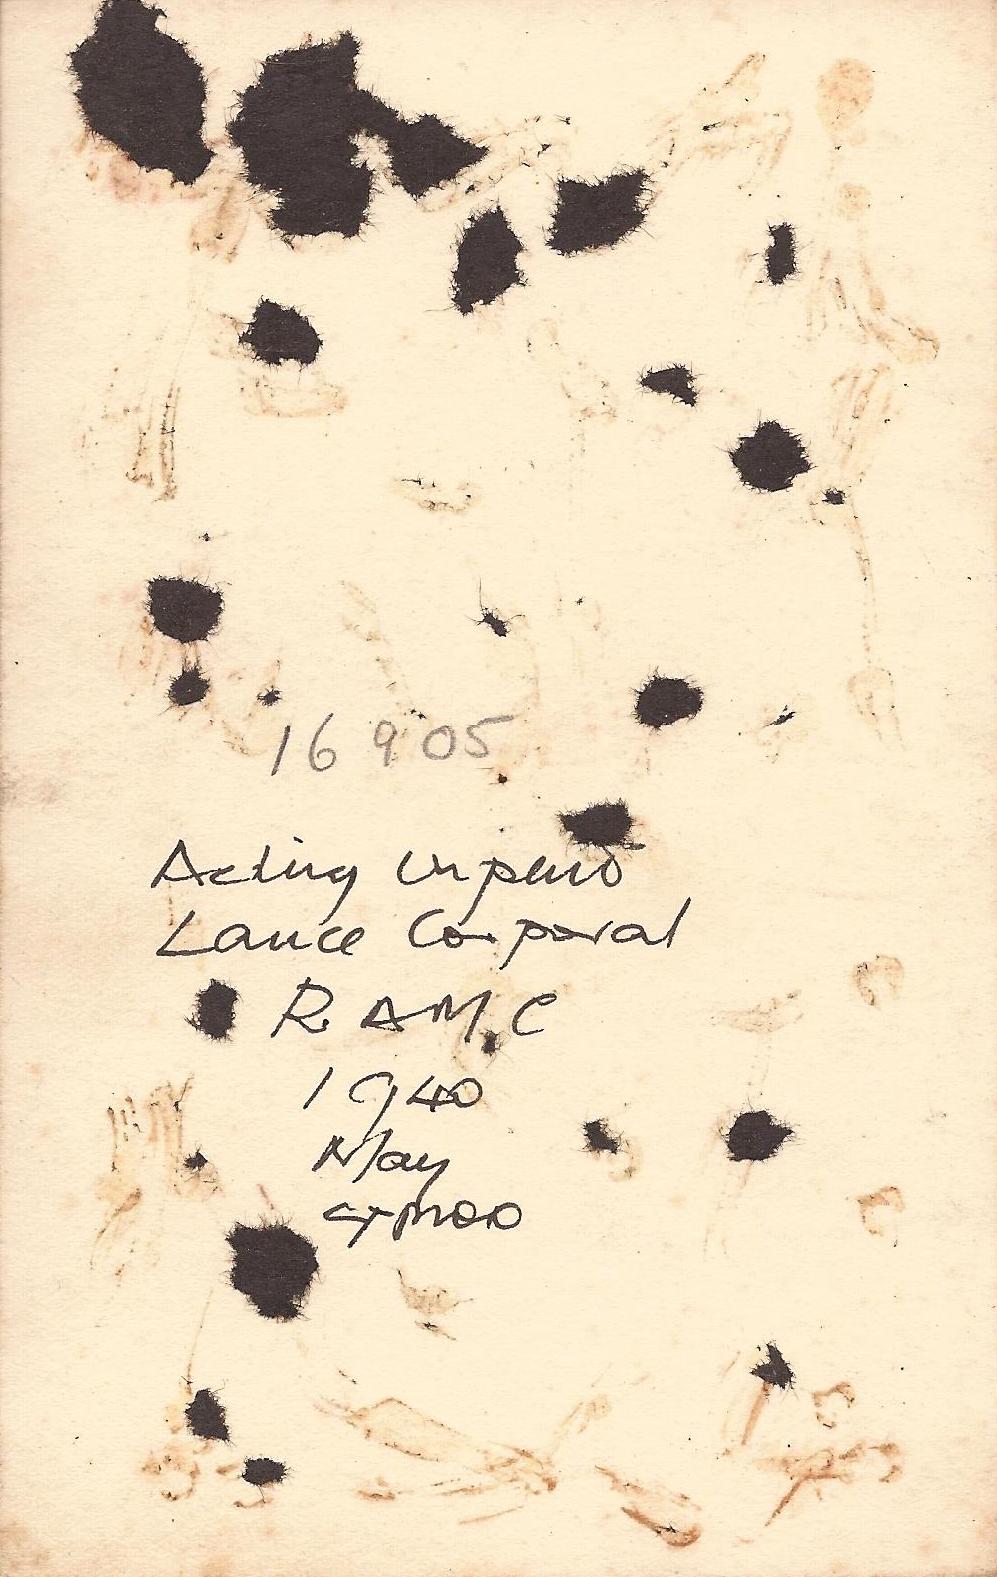 16905
Acting Unpaid
Lance Corporal
R.A.M.C
1940
May